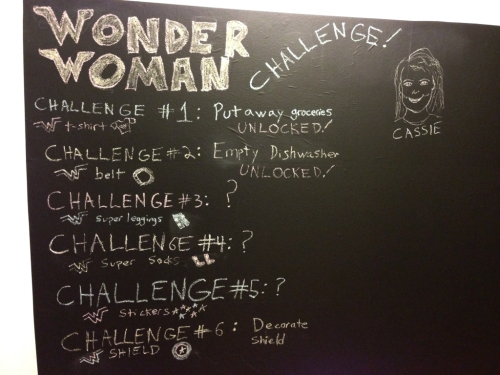 WONDER WOMAN CHALLENGE!
CHALLENGE #1: Put away groceries
t-shirt UNLOCKED!
CHALLENGE #2: Empty Dishwasher
belt UNLOCKED!
CHALLENGE #3: ?
super leggings
CHALLENGE #4: ?
Super Socks
CHALLENGE #5: ?
Stickers
CHALLENGE #6: Decorate
SHIELD shield
CASSIE